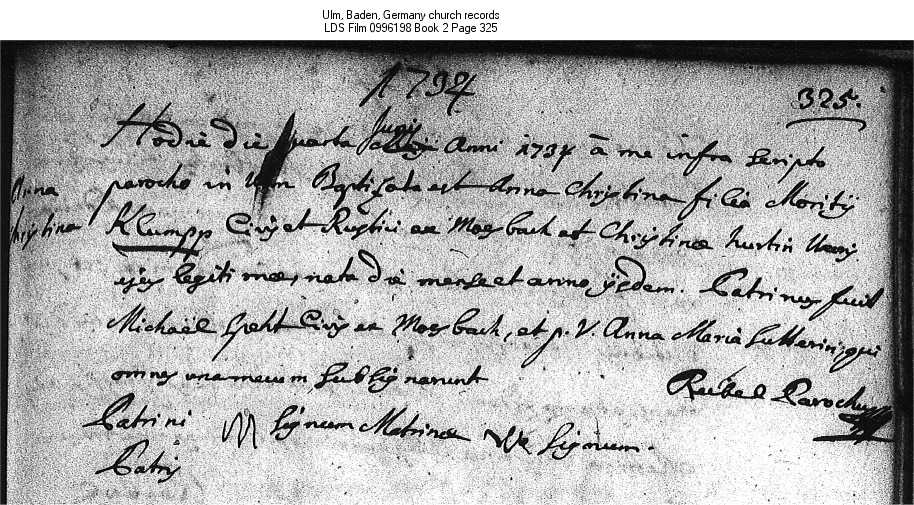 Ulm, Baden, Germany church records
LDS Film 0996198 Book 2 Page 325
1734
325.
Hodie die quarta Junij Anni 1734 â me infra scripto
Anna Christina
parocho in Ulm Baptizata est Anna Christina filia Moritij
Klumpp Civis et Rustici ex Mosbach et Christinæ hurtin Uxoris
ejus legitimæ, nata die mense et anno ijsdem. Patrinus fuit
Michaël Speht Civis ex Mosbach, et p. V. Anna Maria Sutterin, qui
omnes una mecum subsignarunt
Reubel Parochus
Patrini M Signum Matrinæ Signum.
Patris